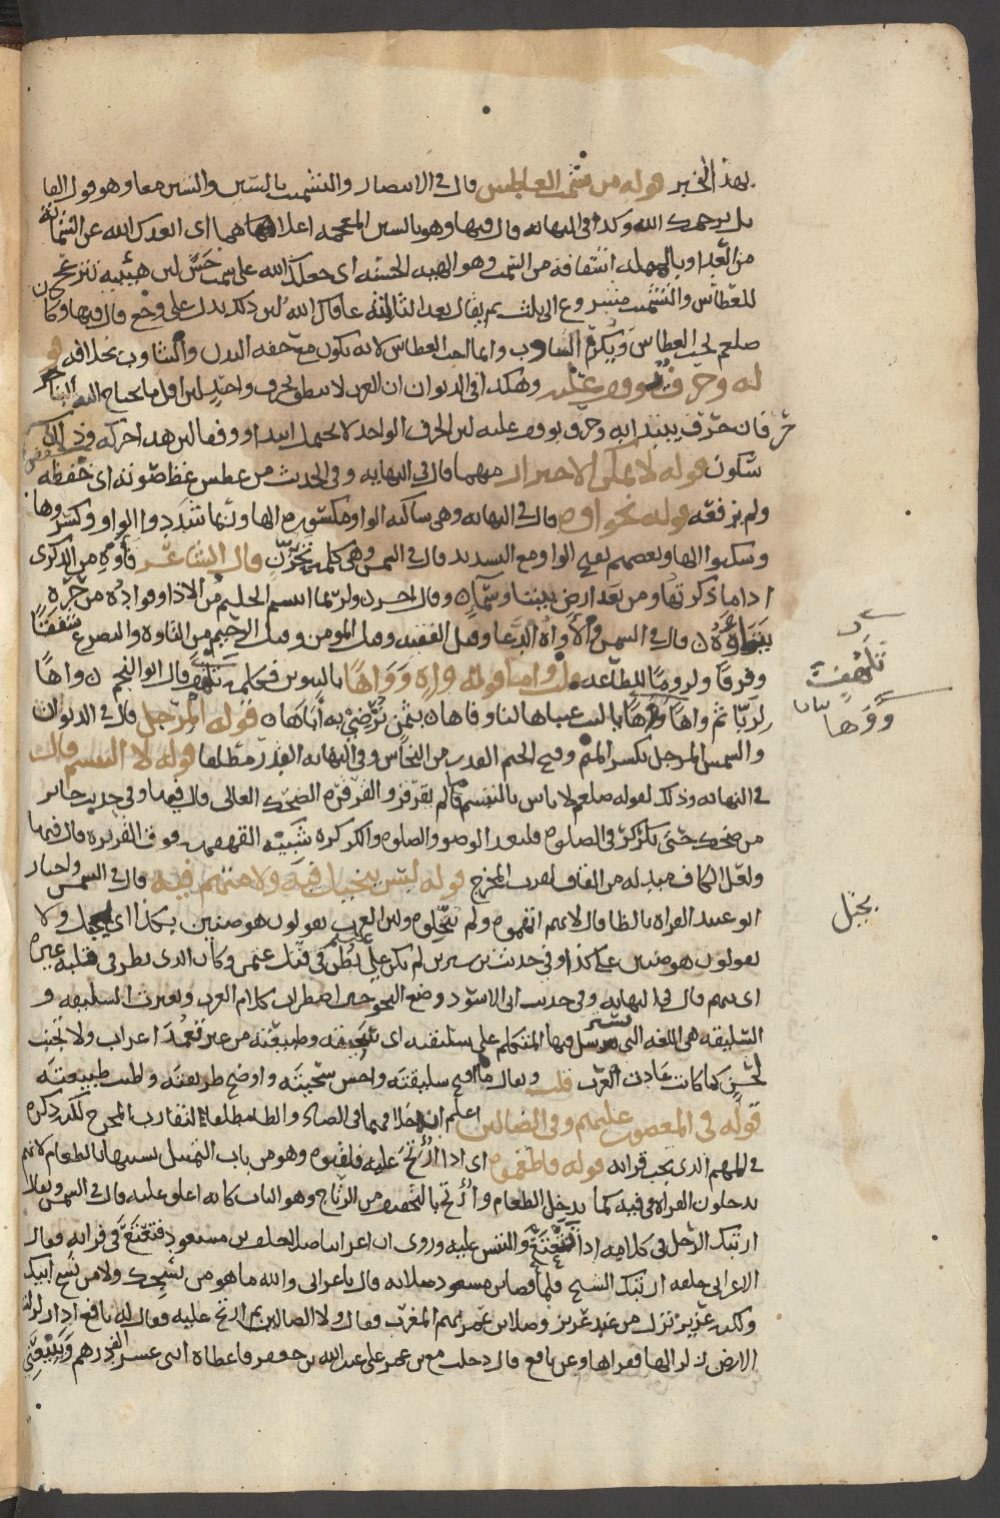 بهذا الخبر قوله من شمت العاطس قال في الانتصار والتشميت بالسين والشين معا وهو قول القا
ئل يرحمك الله وكذا في النهايه قال فيها وهو بالشين المعجمه اعلاهما اى ابعدك الله عن الشماته
من العدا وبالمهمله اشتقاقه من السمت وهو الهيئه الحسنه اى جعلك الله على سمت حسن لان هيئته تنزعج
للعطاس والتشميت مشروع الى ثلث ثم يقال بعد الثالثه عافاك الله لان ذلك يدل على وجع قال فيها وكان
صلعم يحب العطاس ويكره التثاوب وانما احب العطاس لانه يكون مع خفه البدن والتثاوب بخلافه قو
له وحرف يوقف عليه وهكذا في الديوان ان العرب لا تنطق بحرف واحد لان اقل ما يحتاج اليه البنا
حرفان حرف يبتدا به وحرف يوقف عليه لان الحرف الواحد لا يحتمل ابتدا ووقفا لان هذا حركه وذلك
سكون قوله لا يمكن الاحتراز منهما قال في النهايه وفي الحديث من عطس غظ صوته اى خفظه
ولم يرفعه قوله نحو اوه قال في النهايه وهي ساكنه الواو مكسوره الها وربما شددوا الواو وكسروها
وسكنوا الها وبعضهم يفتح الواو مع التشديد قال في الشمس وهي كلمة تحزن قال الشاعر فأوه من الذكرى
اذا ما ذكرتها ومن بعد ارض بيننا وسماء وقال اخر
قال في الشمس الأواه الدعا وقيل الفقيه وقيل المومن وقيل الرحيم من التاوه والتضرع شفقتا
وفرقا ولزوما للطاعه قلت واما قوله واه وواها بالتنوين فكلمة تلهف قال ابو النجم واها
لريا ثم واها واها يا ليت عيناها لنا وفاها بثمن نرضي به أباها قوله المرجل قال في الديوان
والشمس المرجل بكسر الميم وفتح الجيم القدر من النحاس وفي النهايه القدر مطلقا قوله لا التبسم قال
في النهايه وذلك لقوله صلعم لا باس بالتبسم ما لم يقرقر والقرقره الضحك العالى قال فيها وفي حديث جابر
من ضحك حتى يكركر في الصلوه فليعد الوضو والصلوه والكركره شبيه القهقهه فوق القرقره قال فيها
ولعل الكاف مبدله من القاف لقرب المخرج قوله ليس ببخيل فيه ولا متهم فيه قال في الشمس واختار
ابو عبيد القراه بالظا قال لانهم اتهموه ولم يبخلوه ولان العرب يقولون هو ضنين بكذا اى يبخل ولا
يقولون هو ضنين على كذا وفي حديث بن سيرين لم يكن على يظن في قتل عثمن وكان الذى يظن في قتله غيره
اى يتهم قال في النهايه وفي حديث ابى الاسود وضع النحو حين اضطرب كلام العرب وغلبت السليقه و
السليقه هي اللغه التى يسترسل فيها المتكلم على سليقته اى سجيته وطبيعته من غير تعمد اعراب ولا تجنب
لحن كما كانت عادة العرب قلت ويقال ما اقبح سليقته واحسن سجيته واوضح طريقته واطيب طبيعته
قوله في المغضوب عليهم وفي الضالين اعلم ان خلافهما في الضاد والظا مطلقا لتقارب المخرج لكن ذكره
في المهم الذى يجب قراته قوله فاطعموه اى اذا ارتج عليه فلقنوه وهو من باب التمثيل تشبيها بالطعام لانهم
يدخلون القراه في فيه كما يدخل الطعام وارتج بالتخفيف من الرتاج وهو الباب كانه اغلق عليه قال في الشمس ويقال
ارتبك الرجل في كلامه اذا تتعتع والتبس عليه وروى ان اعرابيا صلى خلف بن مسعود فتتعتع في قراته فقال
الاعرابى خلفه ارتبك الشيخ فلما قضا بن مسعود صلاته قال يا اعرابى والله ما هو من نسجك ولا من نسج ابيك
ولكنه عزيز نزل من عند عزيز وصلا بن عمر بهم المغرب فقال ولا الضالين ثم ارتج عليه فقال له نافع اذا زلزلت
الارض زلزالها فقراها وعن نافع قال دخلت مع بن عمر على عبد الله بن جعفر فاعطاه اثنى عشر الف درهم
تلهف
بيان
ووها
بخل